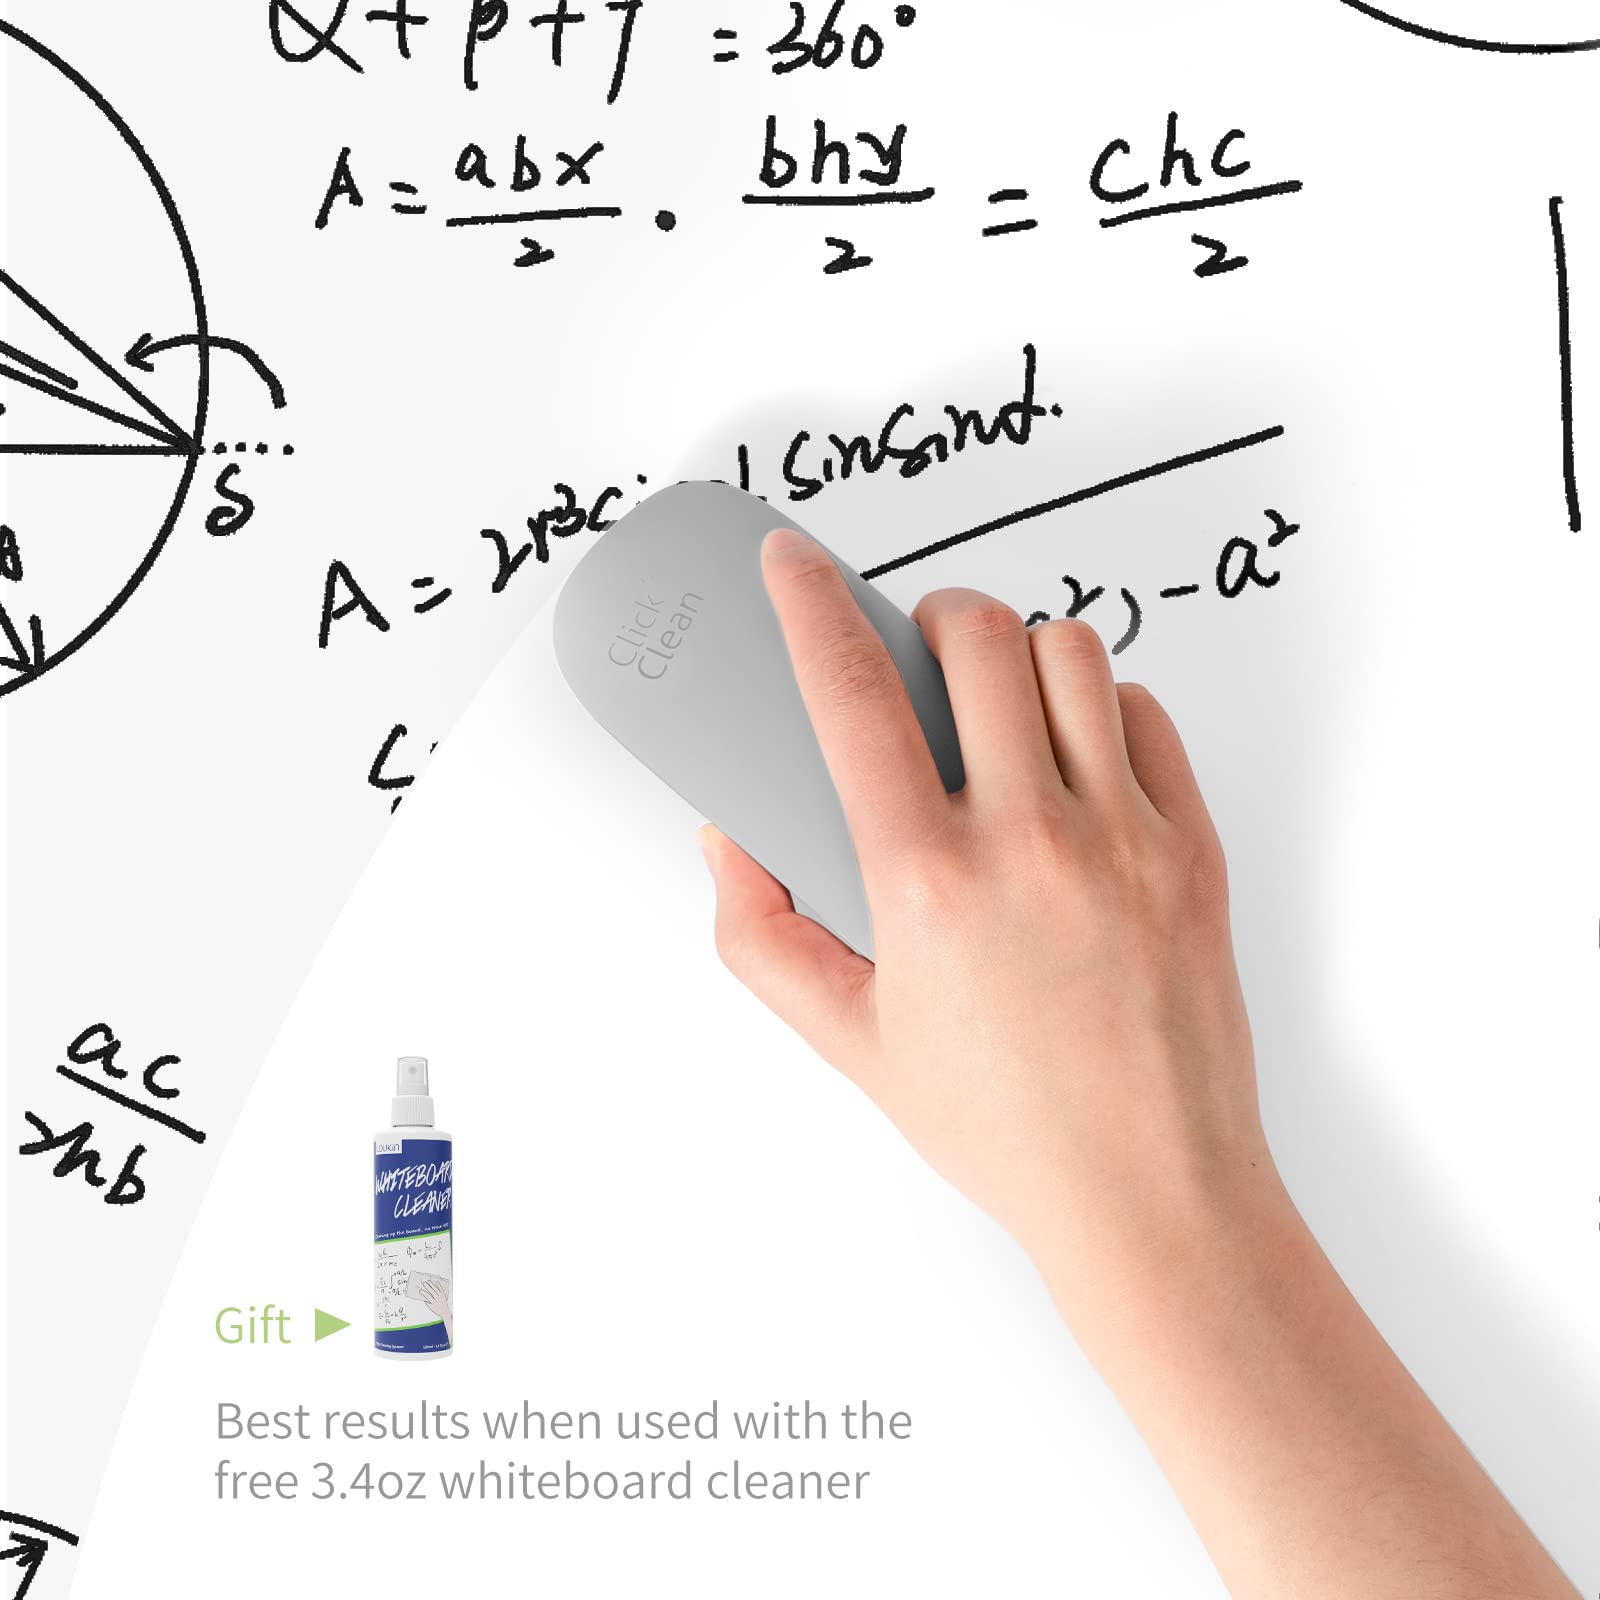 α + β + γ = 360°
A = abx/2 · bhy/2 = chc/2
sinsind.
A = 2r³
²) - a²
δ
Click
Clean
ac/hb
LOUKIN
WHITEBOARD
CLEANER
Gift
Best results when used with the
free 3.4oz whiteboard cleaner